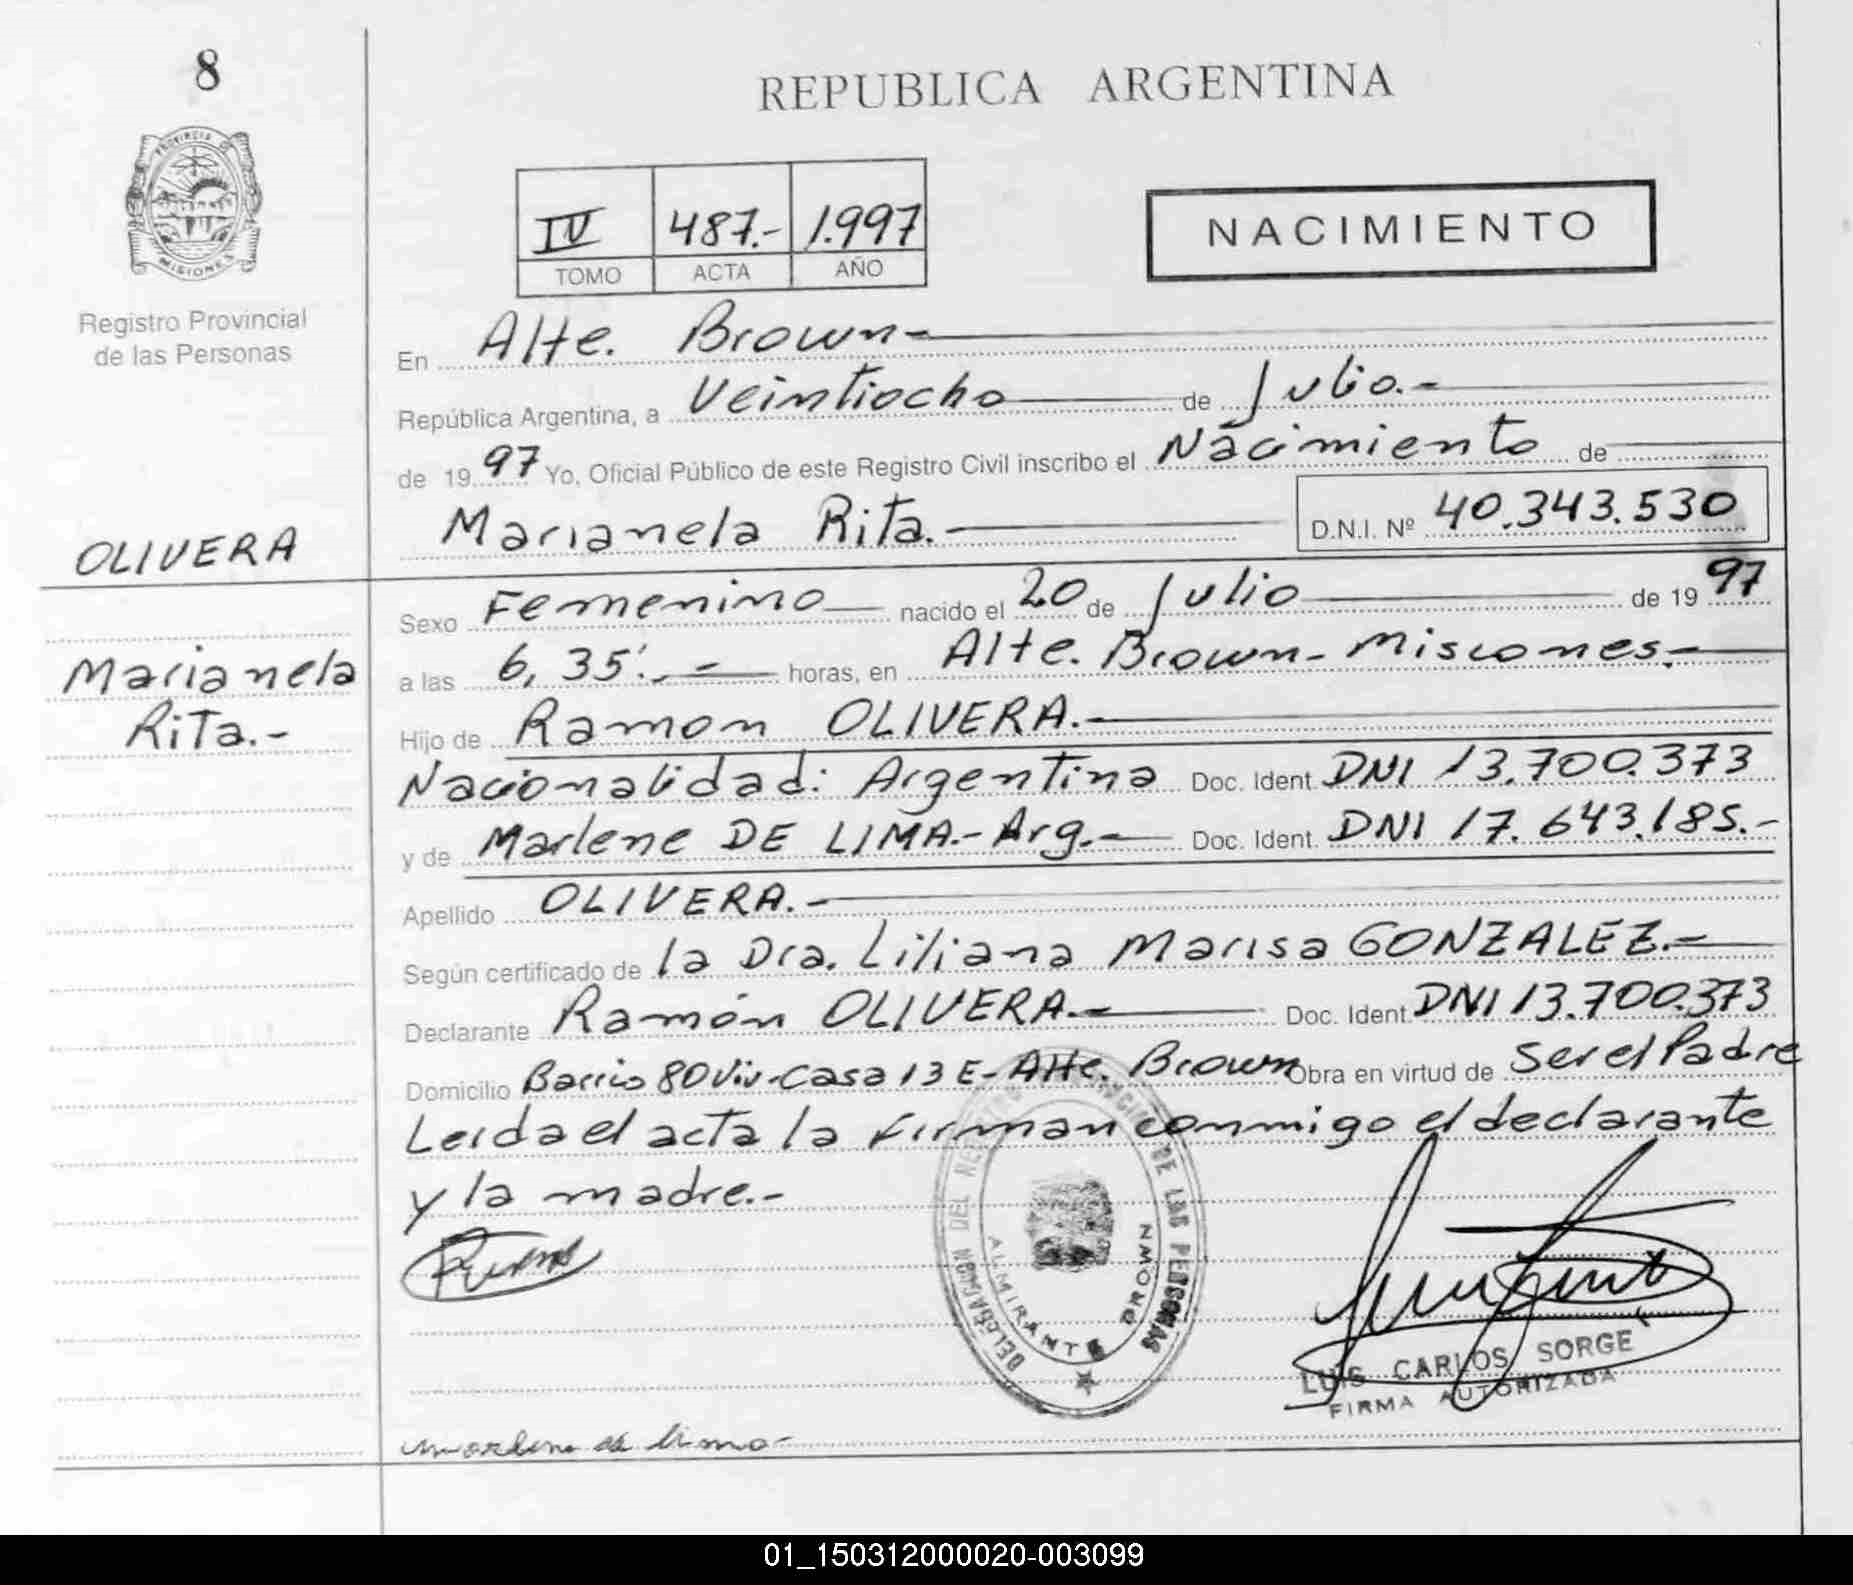 8
REPUBLICA ARGENTINA
PROVINCIA DE
MISIONES
Registro Provincial
de las Personas
IV 487.- 1.997
TOMO ACTA AÑO
NACIMIENTO
En Alte. Brown-
República Argentina, a Veintiocho de Julio.-
de 1997 Yo, Oficial Público de este Registro Civil inscribo el Nacimiento de
OLIVERA
Marianela Rita.- D.N.I. Nº 40.343.530
Sexo Femenino nacido el 20 de Julio de 1997
Marianela
Rita.-
a las 6,35'.- horas, en Alte. Brown- Misiones.-
Hijo de Ramon OLIVERA.-
Nacionalidad: Argentina Doc. Ident. DNI 13.700.373
y de Marlene DE LIMA.- Arg.- Doc. Ident. DNI 17.643.185.-
Apellido OLIVERA.-
Según certificado de la Dra. Liliana Marisa GONZALEZ.-
Declarante Ramón OLIVERA.- Doc. Ident. DNI 13.700.373
Domicilio Barrio 80 Viv-Casa 13 E- Alte. Brown Obra en virtud de Ser el Padre
Leida el acta la firman conmigo el declarante
y la madre.-
DELEGACION DEL REGISTRO PROVINCIAL DE LAS PERSONAS
ALMIRANTE BROWN
LUIS CARLOS SORGE
FIRMA AUTORIZADA
marlene de lima-
01_150312000020-003099